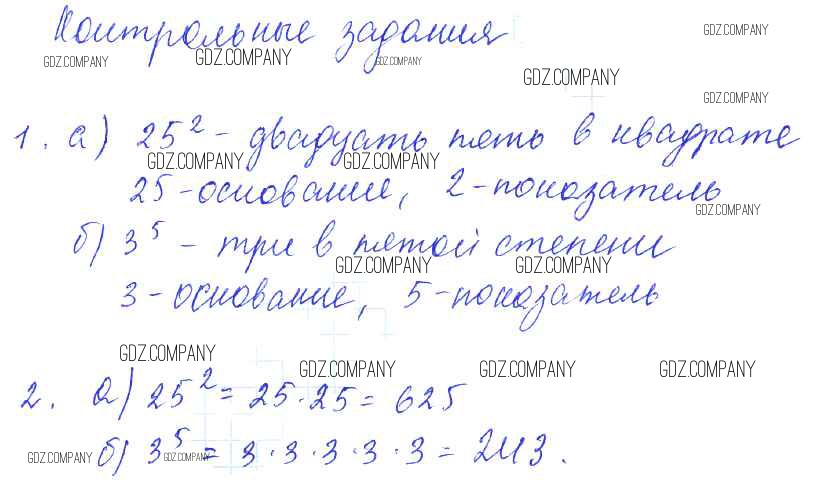 Контрольные задания
GDZ.COMPANY GDZ.COMPANY GDZ.COMPANY GDZ.COMPANY
GDZ.COMPANY
GDZ.COMPANY
1. а) 25² - двадцать пять в квадрате
GDZ.COMPANY GDZ.COMPANY
25 - основание, 2 - показатель
GDZ.COMPANY
б) 3⁵ - три в пятой степени
GDZ.COMPANY GDZ.COMPANY
3 - основание, 5 - показатель
GDZ.COMPANY GDZ.COMPANY GDZ.COMPANY GDZ.COMPANY
2. а) 25² = 25 · 25 = 625
б) 3⁵ = 3 · 3 · 3 · 3 · 3 = 243.
GDZ.COMPANY GDZ.COMPANY